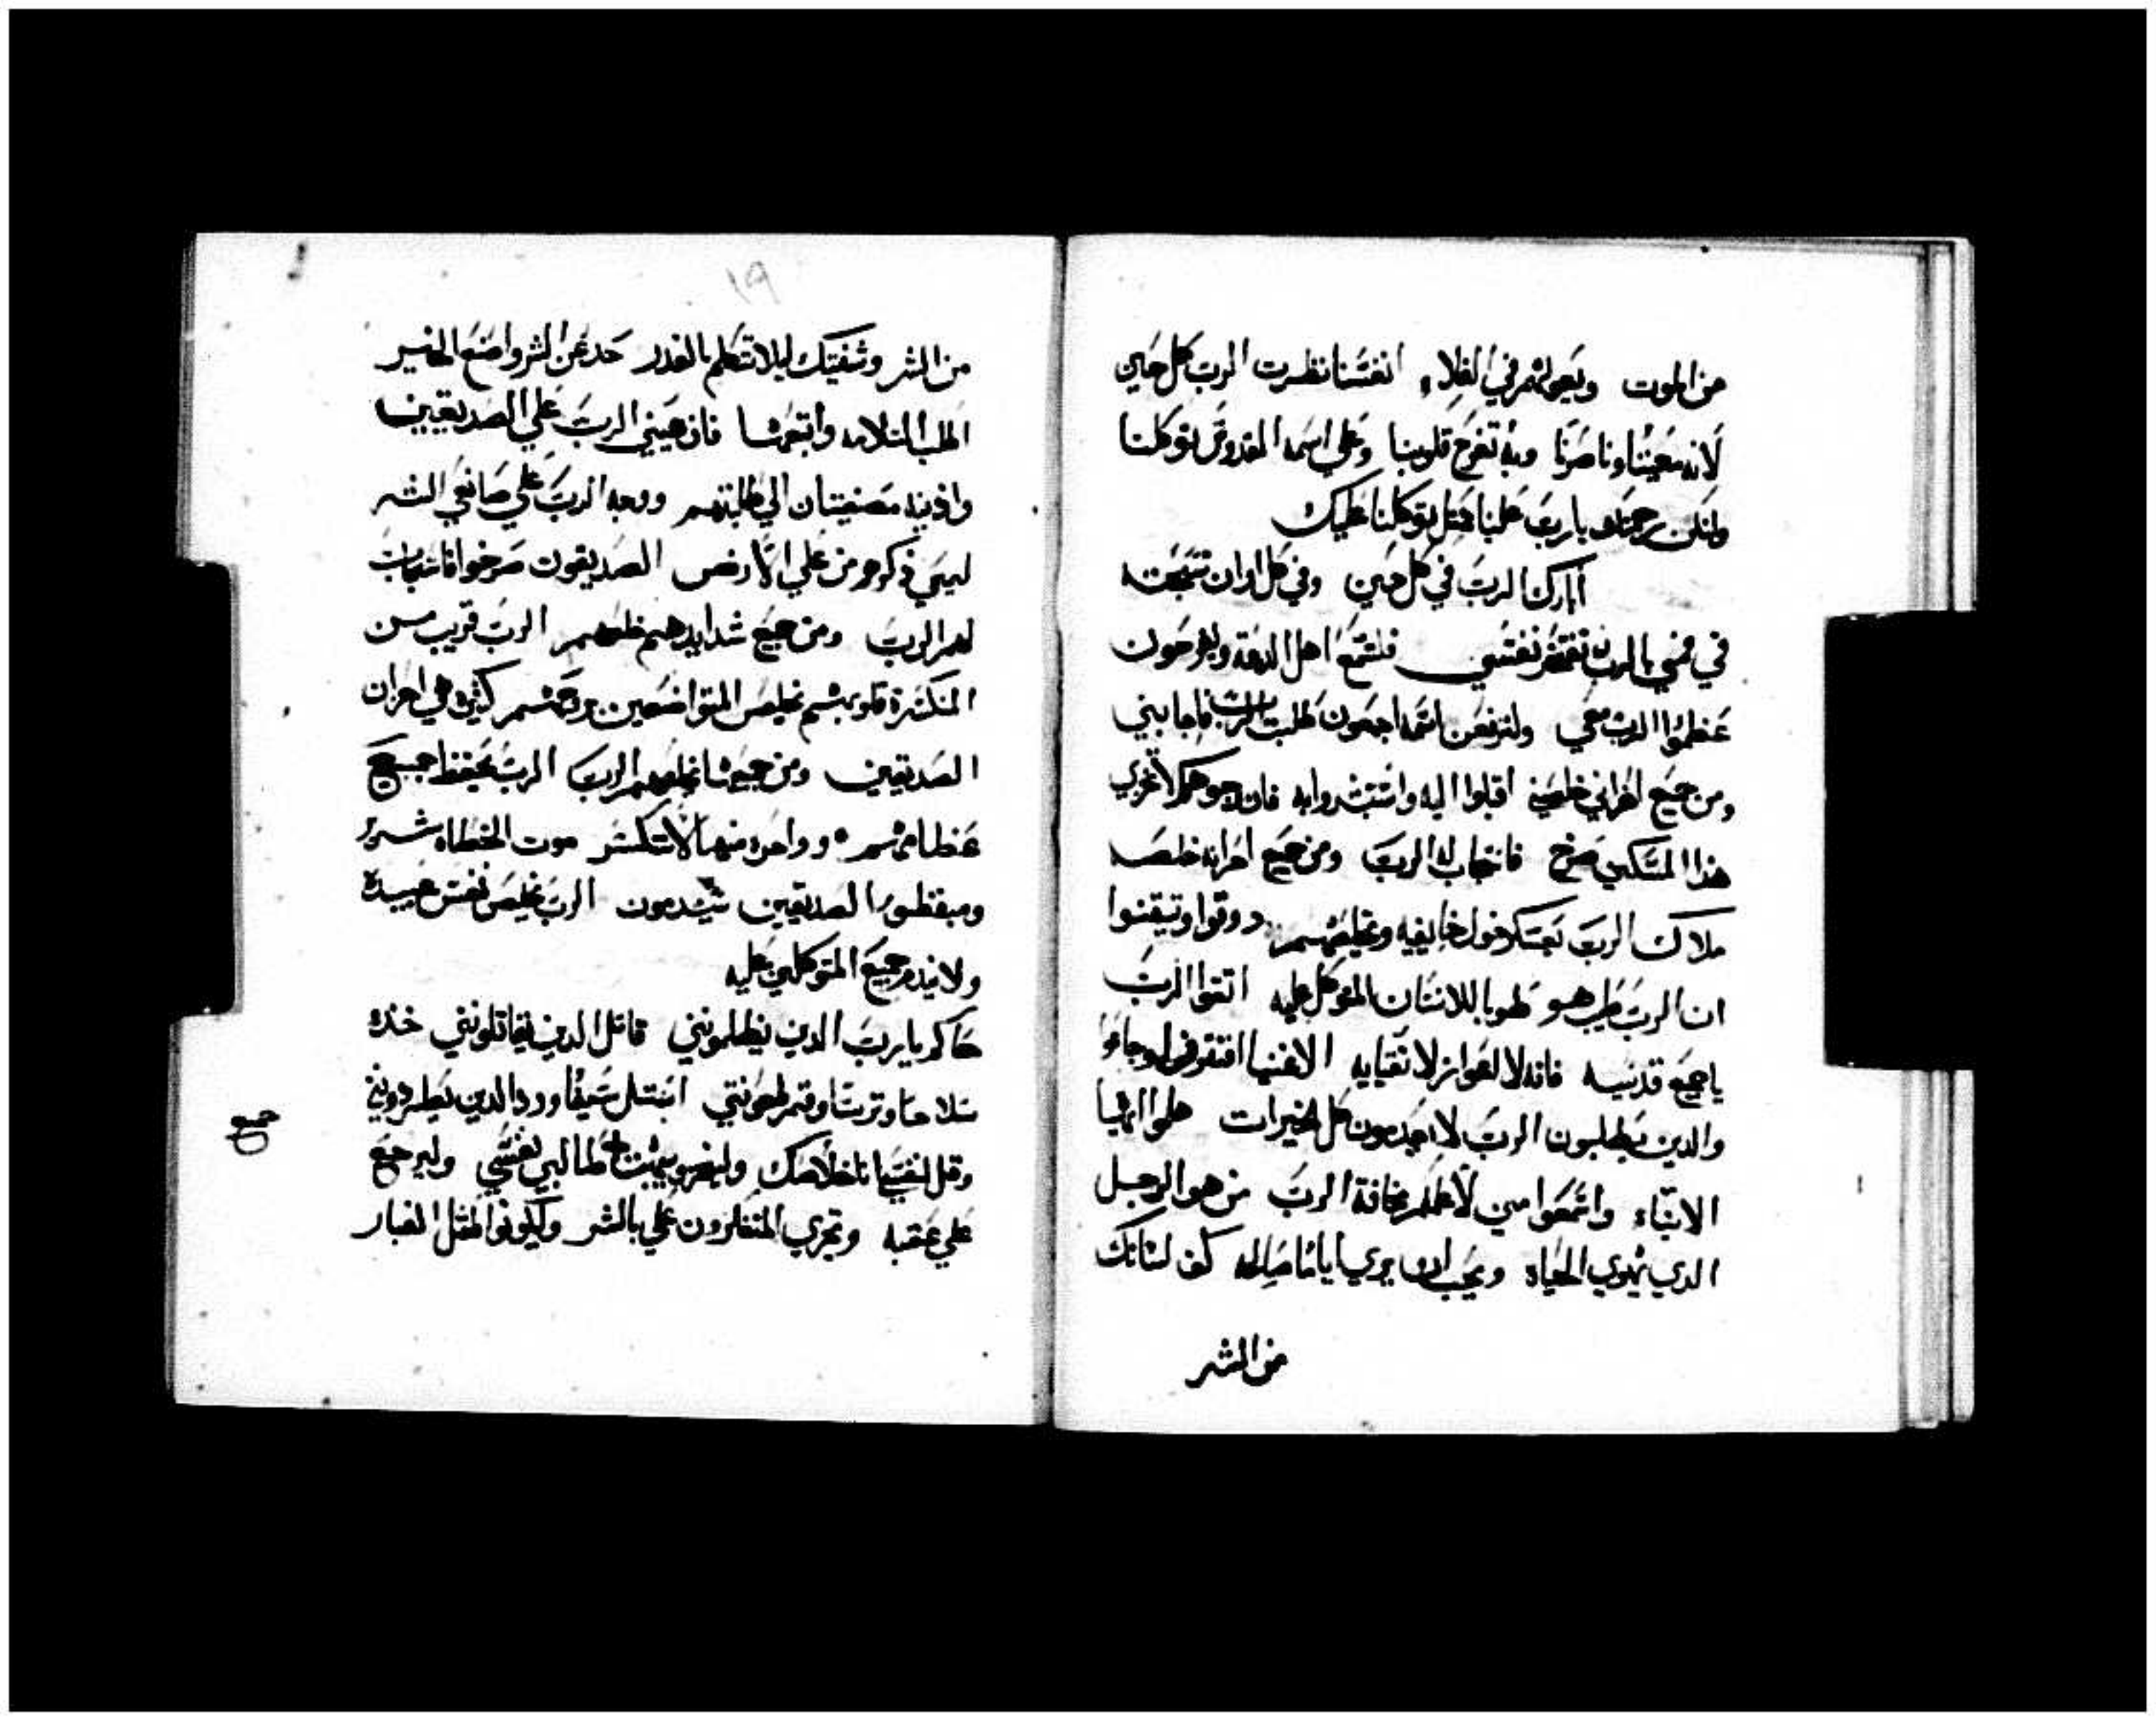 من الموت ويعولهم في الغلاء انفسنا نظرت الرب كل حين
لانه معيننا وناصرنا وبه تفرح قلوبنا وعلي اسمه القدوس توكلنا
ولتكن رحمتك يارب علينا كمثل توكلنا عليك
ابارك الرب في كل حين وفي كل اوان تسبحته
في فمي بالرب تفتخر نفسي فلتسمع اهل الدعة ويفرحون
عظموا الرب معي ولنرفعن اسمه اجمعون طلبت الرب فاجابني
ومن جميع احزاني خلصني اقبلوا اليه واستبشروا به فان وجوهكم لا تخزي
هذا المسكين صرخ فاستجاب له الرب ومن جميع احزانه خلصه
ملاك الرب يعسكر حول خايفيه ويخلصهم دوقوا وتيقنوا
ان الرب طيب هو طوبا للانسان المتوكل عليه اتقوا الرب
ياجميع قديسيه فانه لا اعواز لاتقيايه الاغنيا افتقروا وجاعوا
والدين يطلبون الرب لا يعدمون كل الخيرات هلموا ايها
الابناء واسمعوا مني لاعلمكم مخافة الرب من هو الرجل
الدي يهوي الحياه ويحب ان يري اياما صالحه كف لسانك
من الشر
١٩
من الشر وشفتيك ليلا تتكلم بالغدر حد عن الشر واصنع الخير
اطلب السلامه واتبعها فان عيني الرب علي الصديقين
واذنيه مصغيتان الي طلبتهم ووجه الرب علي صانعي الشر
ليبيد ذكرهم من علي الارض الصديقون صرخوا فاستجاب
لهم الرب ومن جميع شدايدهم خلصهم الرب قريب من
المنكسرة قلوبهم يخلص المتواضعين بروحهم كثيرة هي احزان
الصديقين ومن جميعها يخلصهم الرب الرب يحفظ جميع
عظامهم وواحده منها لا تنكسر موت الخطاه شرير
ومبغضوا الصديقين سيندمون الرب يخلص نفس عبيده
ولا يندم جميع المتوكلين عليه
حاكم يارب الدين يظلمونني قاتل الدين يقاتلونني خذ
سلاحا وترسا وقم لمعونتي استل سيفا ورد الدين يطردونني
وقل لنفسي انا خلاصك وليخز ويبهت طالبي نفسي وليرجع
علي عقبه ويخزي المتفكرون علي بالشر وليكونوا مثل الغبار
جميع